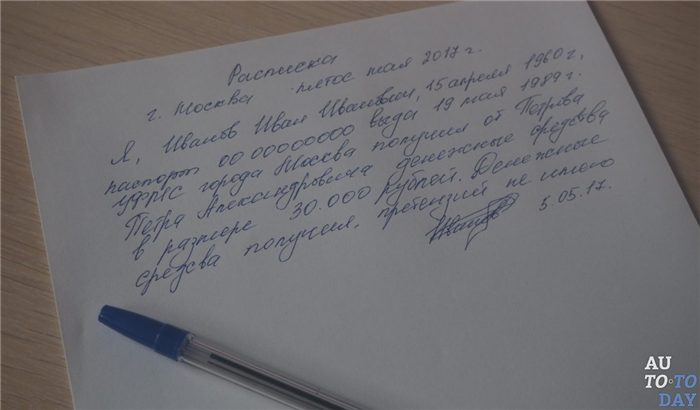 Расписка
г. Москва пятое мая 2017 г.
Я, Иванов Иван Иванович, 15 апреля 1960 г,
паспорт 00 00000000 выдан 19 мая 1989 г.
УФМС города Москва получил от Петрова
Петра Александровича денежные средства
в размере 30.000 рублей. Денежные
средсва получил, претензий не имею
5.05.17.
AU
TO TO
DAY